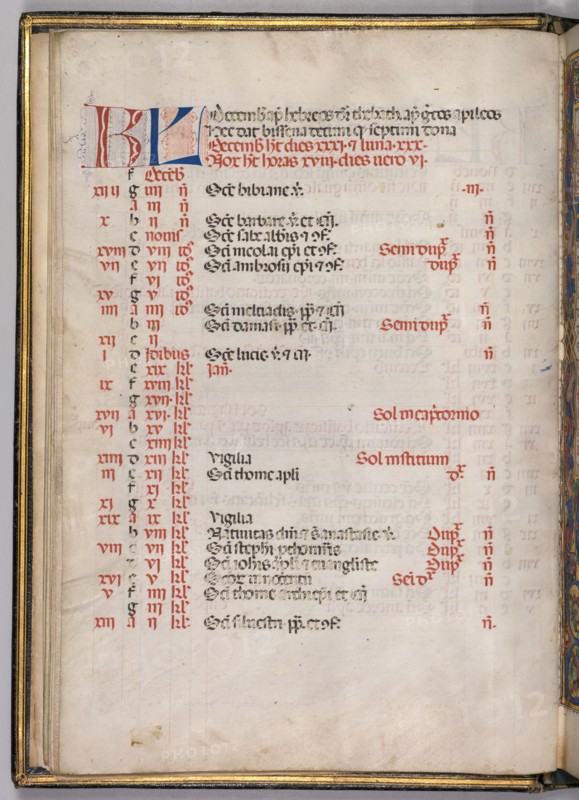 KL Decemb ap hebreos dr thebath. ap grecos apileos
Nec dat bissena decimi q septimi dona
Decemb hr dies xxxi. 7 luna. xxx.
Nox hr horas xviii. dies uero vi.
f Deceb
xiii g iiii n Sce bibiane v. .iii.
a iii n
x b ii n Sce barbare v. et m. n
c nonis Sce sabe abbis 7 9f. n
xviii d viii id Sci nicolai epi et 9f. Semidup n
vii e vii id Sci ambrosii epi 7 9f. dup n
f vi id
xv g v id
iiii a iiii id Sci melciadis. pp 7 m n
b iii Sci damasi. pp et. 9f. Semidup n
xii c ii
i d Idibus Sce lucie. v. 7 m. n
e xix kl Ian.
ix f xviii kl
g xvii. kl
xvii a xvi. kl Sol in capcornio
vi b xv kl
c xiiii kl
xiiii d xiii kl vigilia Sol institium
iii e xii kl Sci thome apli d. n
f xi kl
xi g x kl
xix a ix kl vigilia
b viii kl Natiuitas dni. et s. anastasie v. Dup n
viii c vii kl Sci stephi pthomris Dup n
d vi kl Sci iohis. apli 7 euangliste Dup n
xvi e v kl Scor innocentu Sei d n
v f iiii kl Sci thome archiepi et m
g iii kl
xiii a ii kl Sci siluestri. pp. et 9f. n.